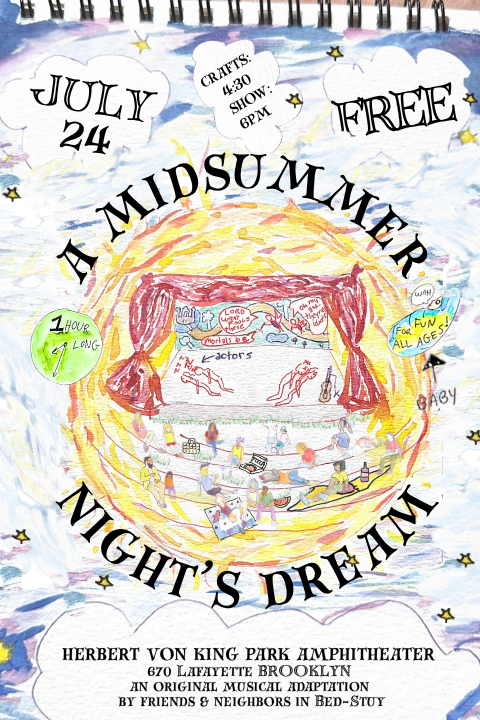 JULY
24
CRAFTS:
4:30
SHOW:
6PM
FREE
A MIDSUMMER
1 HOUR
LONG
LORD
WHAT
FOOLS
THESE
MORTALS BE!
OH MY
WAH
FOR FUN
ALL AGES!
BABY
actors
PIZZA
NIGHT'S DREAM
HERBERT VON KING PARK AMPHITHEATER
670 LAFAYETTE BROOKLYN
AN ORIGINAL MUSICAL ADAPTATION
BY FRIENDS & NEIGHBORS IN BED-STUY